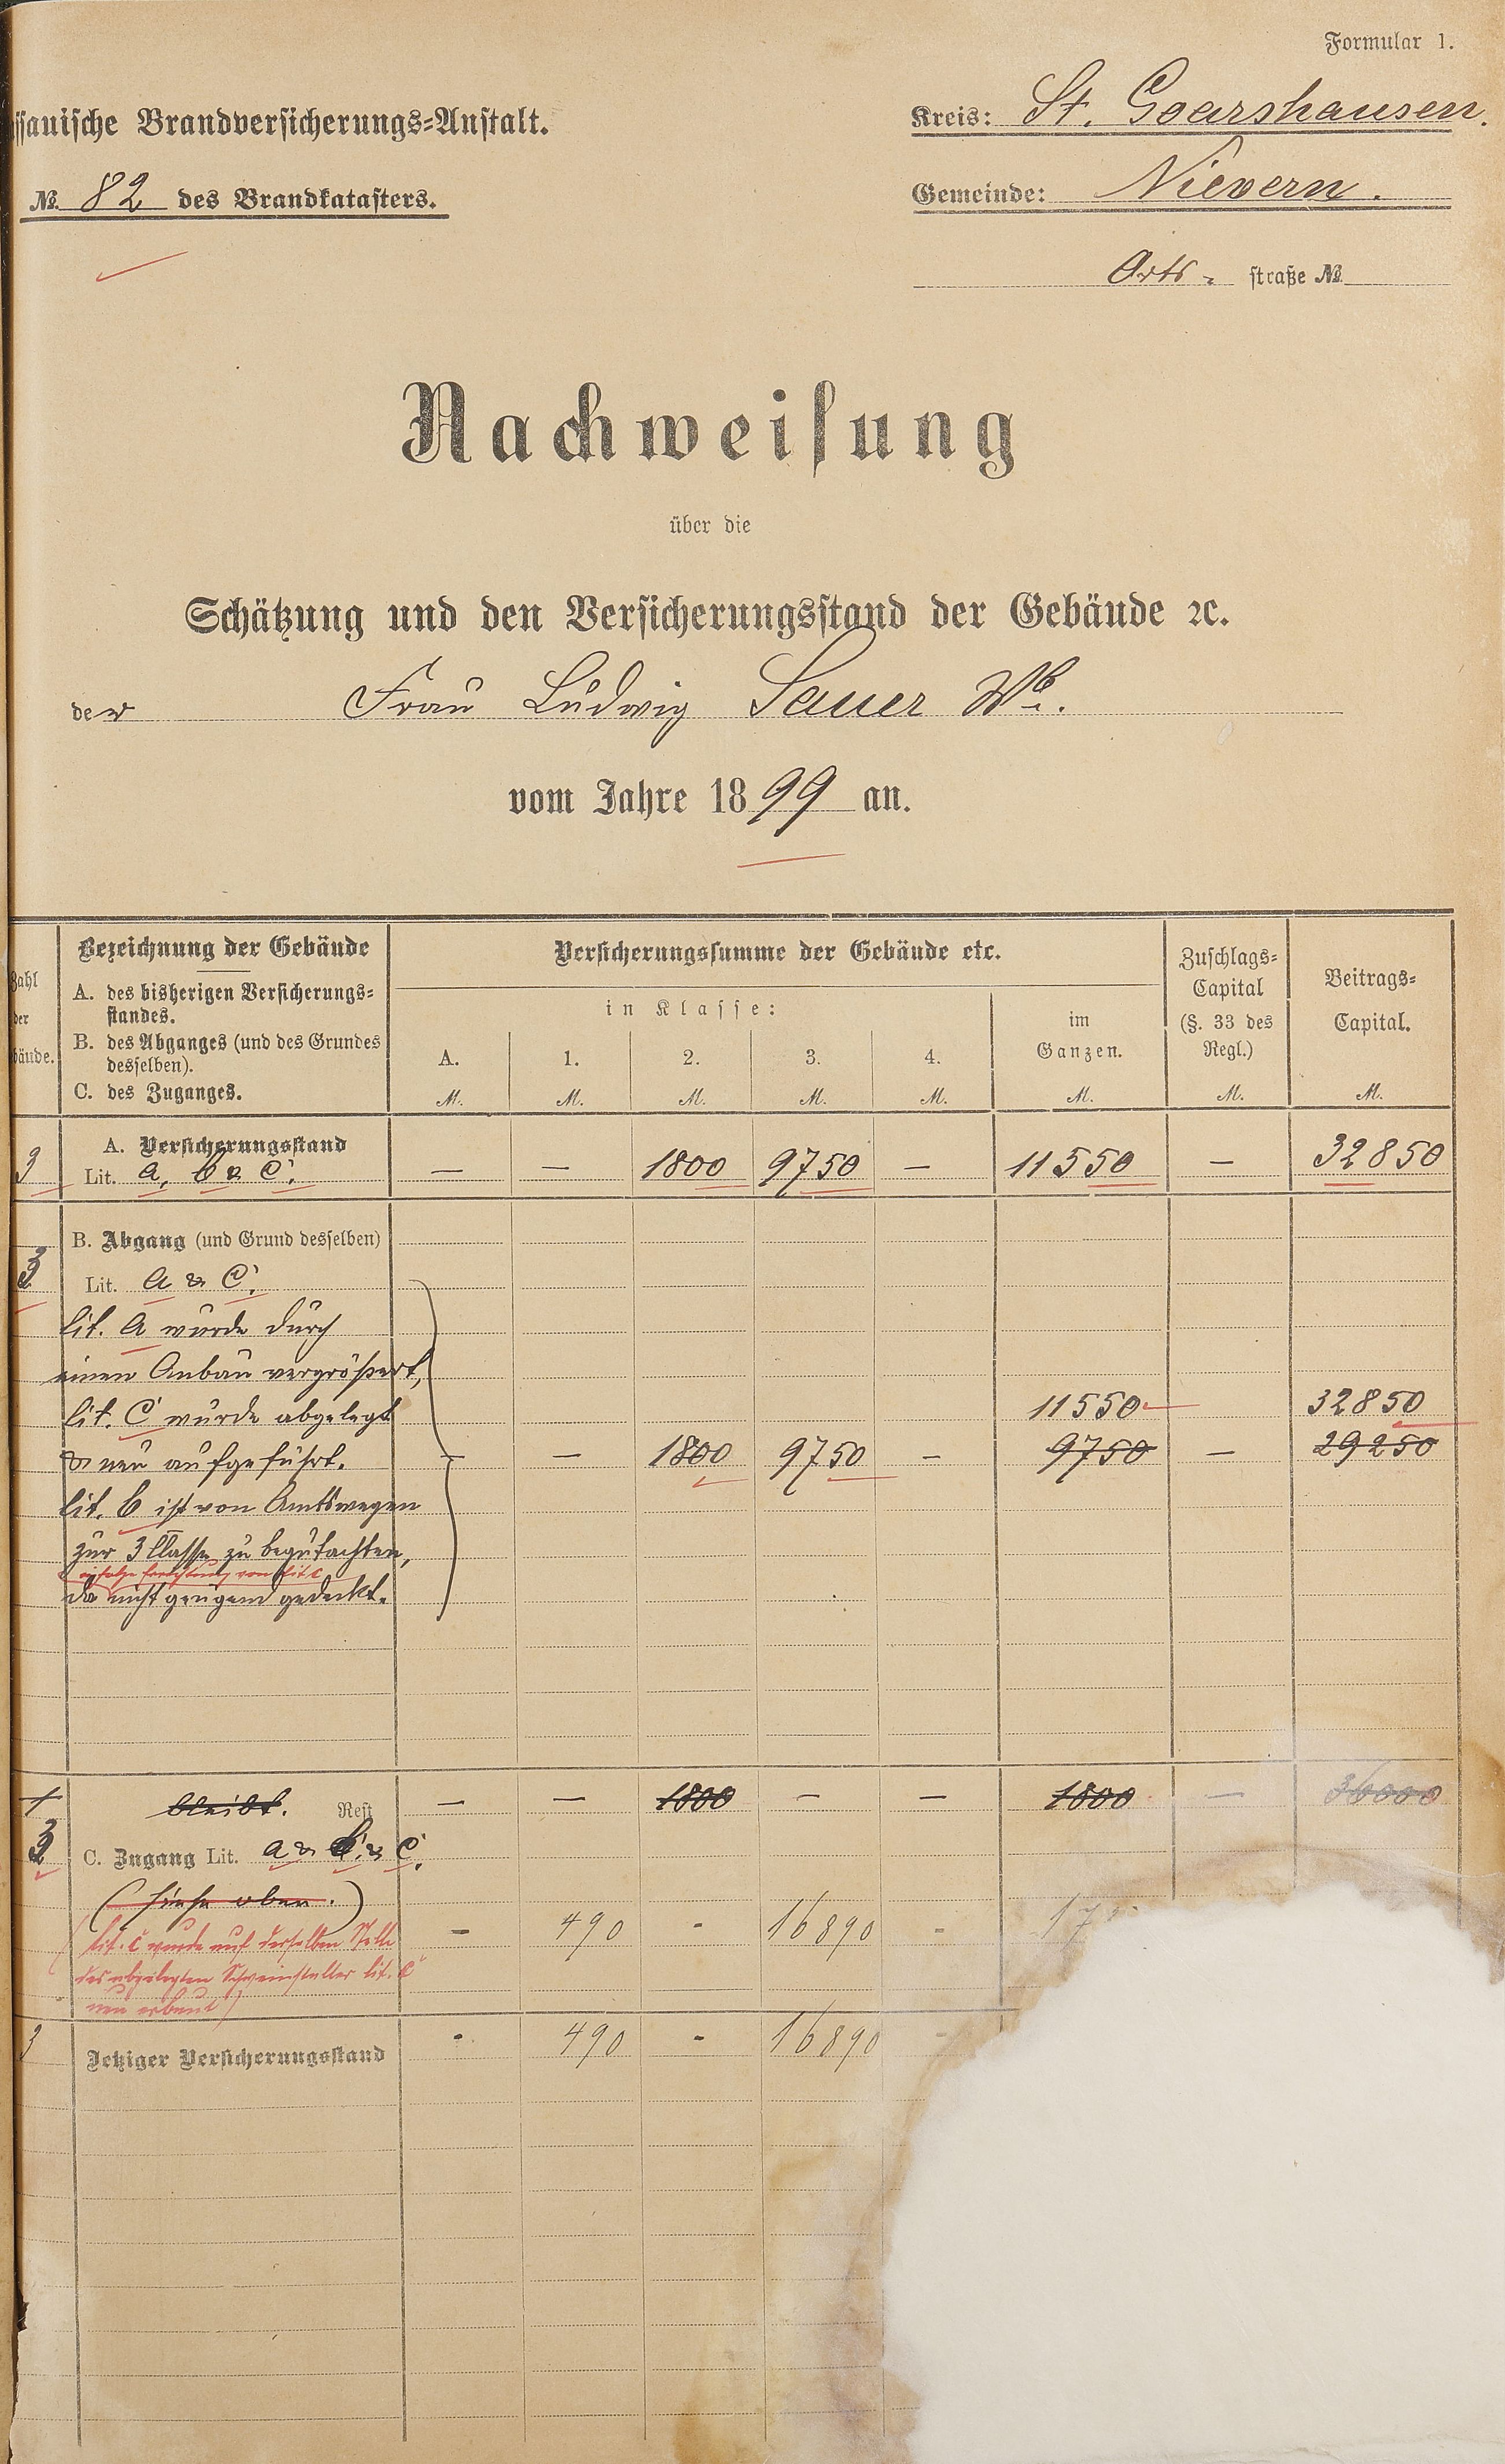 Formular 1.
ssauische Brandversicherungs-Anstalt.
Kreis: St. Goarshausen.
№. 82 des Brandkatasters.
Gemeinde: Nievern.
Orts- straße №
Nachweisung
über die
Schätzung und den Versicherungsstand der Gebäude ꝛc.
der Frau Ludwig Sauer Wb.
vom Jahre 1899 an.
Zahl der bäude.
Bezeichnung der Gebäude
A. des bisherigen Versicherungs-
standes.
B. des Abganges (und des Grundes
desselben).
C. des Zuganges.
Versicherungssumme der Gebäude etc.
in Klasse:
A. 1. 2. 3. 4.
im Ganzen.
Zuschlags-
Capital
(§. 33 des
Regl.)
Beitrags-
Capital.
M. M. M. M. M. M. M. M.
A. Versicherungsstand
3 Lit. a, b & c. — — 1800 9750 — 11550 — 32850
B. Abgang (und Grund desselben)
3 Lit. a & c.
lit. a wurde durch
einen Anbau vergrößert,
lit. c wurde abgelegt 11550 32850
& neu aufgeführt. — — 1800 9750 — 9750 — 29250
lit. b ist von Amtswegen
zur 3 Classe zu begutachten,
infolge Errichtung von lit c
da nicht genügend gedeckt.
1 bleibt. Rest — — 1800 — — 1800 — 36000
3 C. Zugang Lit. a & b & c.
(siehe oben.)
(lit. c wurde auf derselben Stelle - 490 - 16890 - 17
des abgelegten Schweinstalles lit. c
neu erbaut)
3 Jetziger Versicherungsstand - 490 - 16890 -